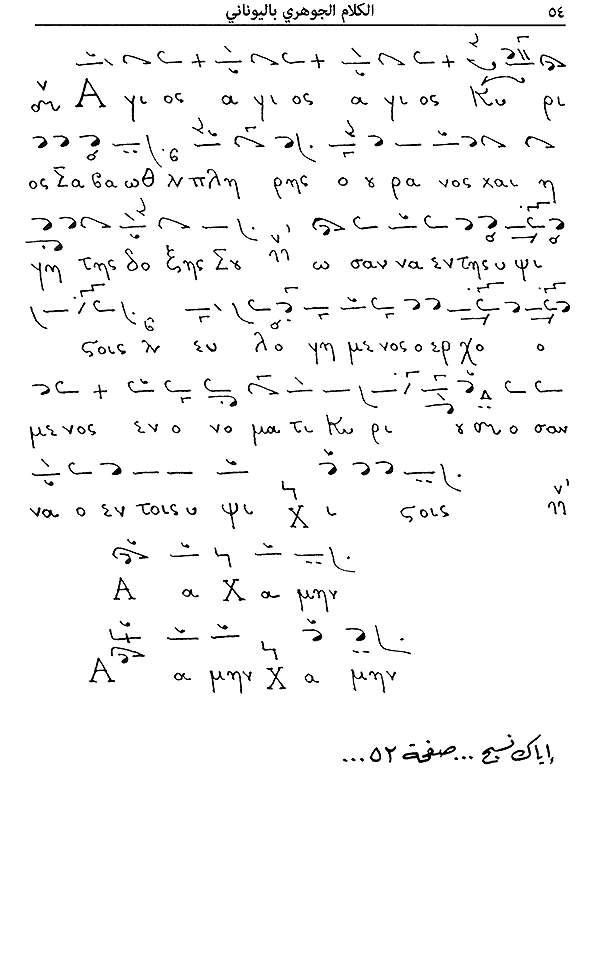 ٥٤ الكلام الجوهري باليوناني
Α γι ος α γι ος α γι ος Κυ ρι
ος Σα βα ωθ πλη ρης ο υ ρα νος και η
γη της δο ξης Σου ω σαν να εν της υ ψι
στοις ευ λο γη με νος ο ερ χο ο
με νος εν ο νο μα τι Κυ ρι ου ο σαν
να ο εν τοις υ ψι Χ ι στοις
Α α Χ α μην
Α α μην Χ α μην
إياك نسبح ... صفحة ٥٢ ...